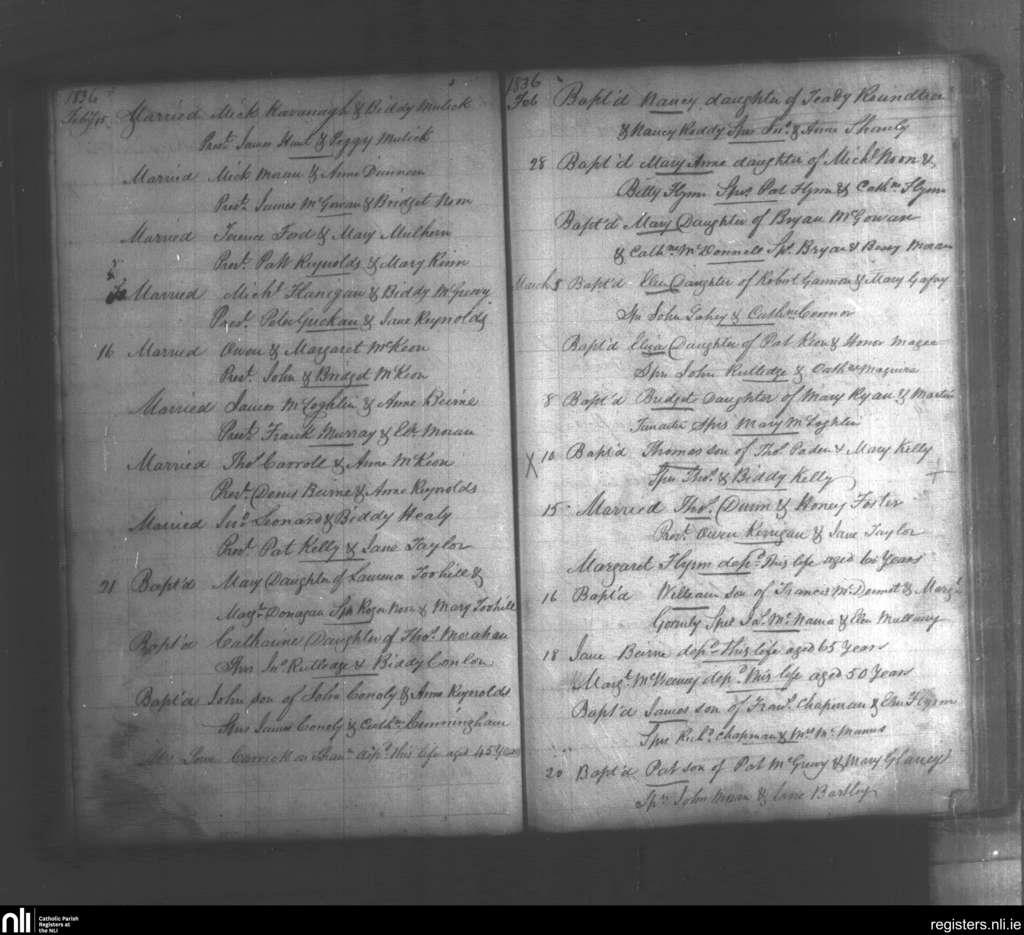 1836
Feby 15 Married Mick Kavanagh & Biddy Mulick
Prest. James Hunt & Peggy Mulick
Married Mick Moran & Anne
Prest. James McGowan & Bridget
Married Terence Ford & Mary Mulhern
Prest. Patt Reynolds & Mary Kinn
Married Michl. Flanegan & Biddy McGreevy
Prest. Peter & Jane Reynolds
16 Married Owen & Margaret McKeon
Prest. John & Bridget McKeon
Married James McLoghlin & Anne Beirne
Prest. Frank Murray & Moran
Married Thos. Carroll & Anne McKeon
Prest. Denis Beirne & Anne Reynolds
Married Jno. Leonard & Biddy Healy
Prest. Pat Kelly & Jane Taylor
21 Bapt'd Mary Daughter of Toohill &
Margt. Donagan Sprs Roger & Mary Toohill
Bapt'd Catharine Daughter of Thos. Morahan
Sprs Jno. Rutledge & Biddy Conlon
Bapt'd John son of John Conoly & Anne Reynolds
Sprs James Conoly & Cathn. Cunningham
Carrick on Shann. dep. this life aged 45 Years
1836
Feb Bapt'd Nancy daughter of Teady Roundtree
& Nancy Reddy Sprs Jno. & Anne Shanly
28 Bapt'd Mary Anne daughter of Michl. Noon &
Betty Flynn Sprs Pat Flynn & Cathn. Flynn
Bapt'd Mary Daughter of Bryan McGowan
& Cathne. McDonnell Sps. Bryan & Moran
March 5 Bapt'd Daughter of Robert Gannon & Mary Gafny
Spr John & Cathne. Connor
Bapt'd Eliza Daughter of Pat Keon & Honor Magee
Sprs John Rutledge & Cathne. Maguire
8 Bapt'd Bridget Daughter of Mary Ryan & Martin
Sprs Mary McLoghlin
X 10 Bapt'd Thomas son of Thos. Paden & Mary Kelly
Sprs Thos. & Biddy Kelly
15 Married Thos. Dunn & Honey Foster
Prest. Owen Kerrigan & Jane Taylor
Margaret Flynn depd. this life aged 60 Years
16 Bapt'd William son of Francis McDermot & Margt.
Gormly Sprs Jas. McNama & Elen Mullany
18 Jane Beirne depd. this life aged 65 Years
Margt. depd. this life aged 50 Years
Bapt'd James son of Frans. Chapman & Elen Flynn
Sprs Richd. Chapman & McManus
20 Bapt'd Pat son of Pat McGreevy & Mary Glancy
Sprs John Moran & Jane Bartley
nli
Catholic Parish
Registers at
the NLI
registers.nli.ie